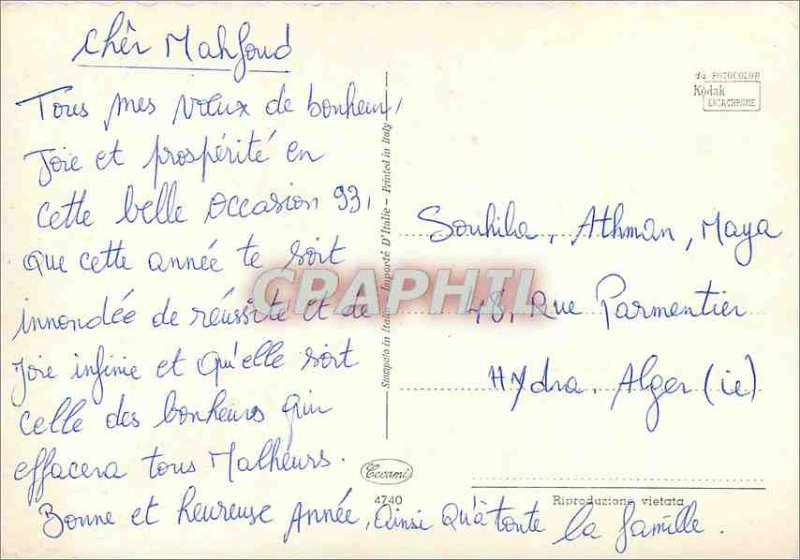 Chèr Mahfoud
Tous mes vœux de bonheur,
Joie et prospérité en
cette belle occasion 93,
que cette année te soit
innondée de réussite et de
Joie infinie et qu'elle soit
celle des bonheurs qui
effacera tous Malheurs.
Bonne et heureuse Année, Ainsi qu'à toute la famille.
Stampato in Italia - Importé D'Italie - Printed in Italy
CPAPHIL
da FOTOCOLOR
Kodak
EKTACHROME
Souhila, Athman, Maya
48, Rue Parmentier
Hydra. Alger (ie)
Cecami
4740
Riproduzione vietata